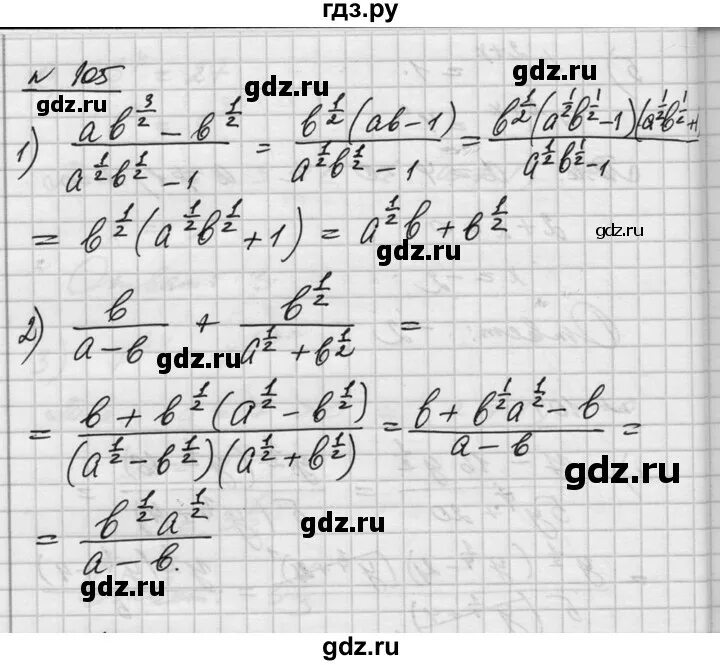 гдз.ру
№ 105
gdz.ru gdz.ru gdz.ru
1) (ab^(3/2) − b^(1/2))/(a^(1/2)b^(1/2) − 1) = (b^(1/2)(ab − 1))/(a^(1/2)b^(1/2) − 1) = (b^(1/2)(a^(1/2)b^(1/2) − 1)(a^(1/2)b^(1/2) + 1))/(a^(1/2)b^(1/2) − 1)
= b^(1/2)(a^(1/2)b^(1/2) + 1) = a^(1/2)b + b^(1/2) gdz.ru
gdz.ru
2) b/(a − b) + b^(1/2)/(a^(1/2) + b^(1/2)) =
gdz.ru gdz.ru
= (b + b^(1/2)(a^(1/2) − b^(1/2)))/((a^(1/2) − b^(1/2))(a^(1/2) + b^(1/2))) = (b + b^(1/2)a^(1/2) − b)/(a − b) =
gdz.ru
= (b^(1/2)a^(1/2))/(a − b). gdz.ru
gdz.ru
gdz.ru